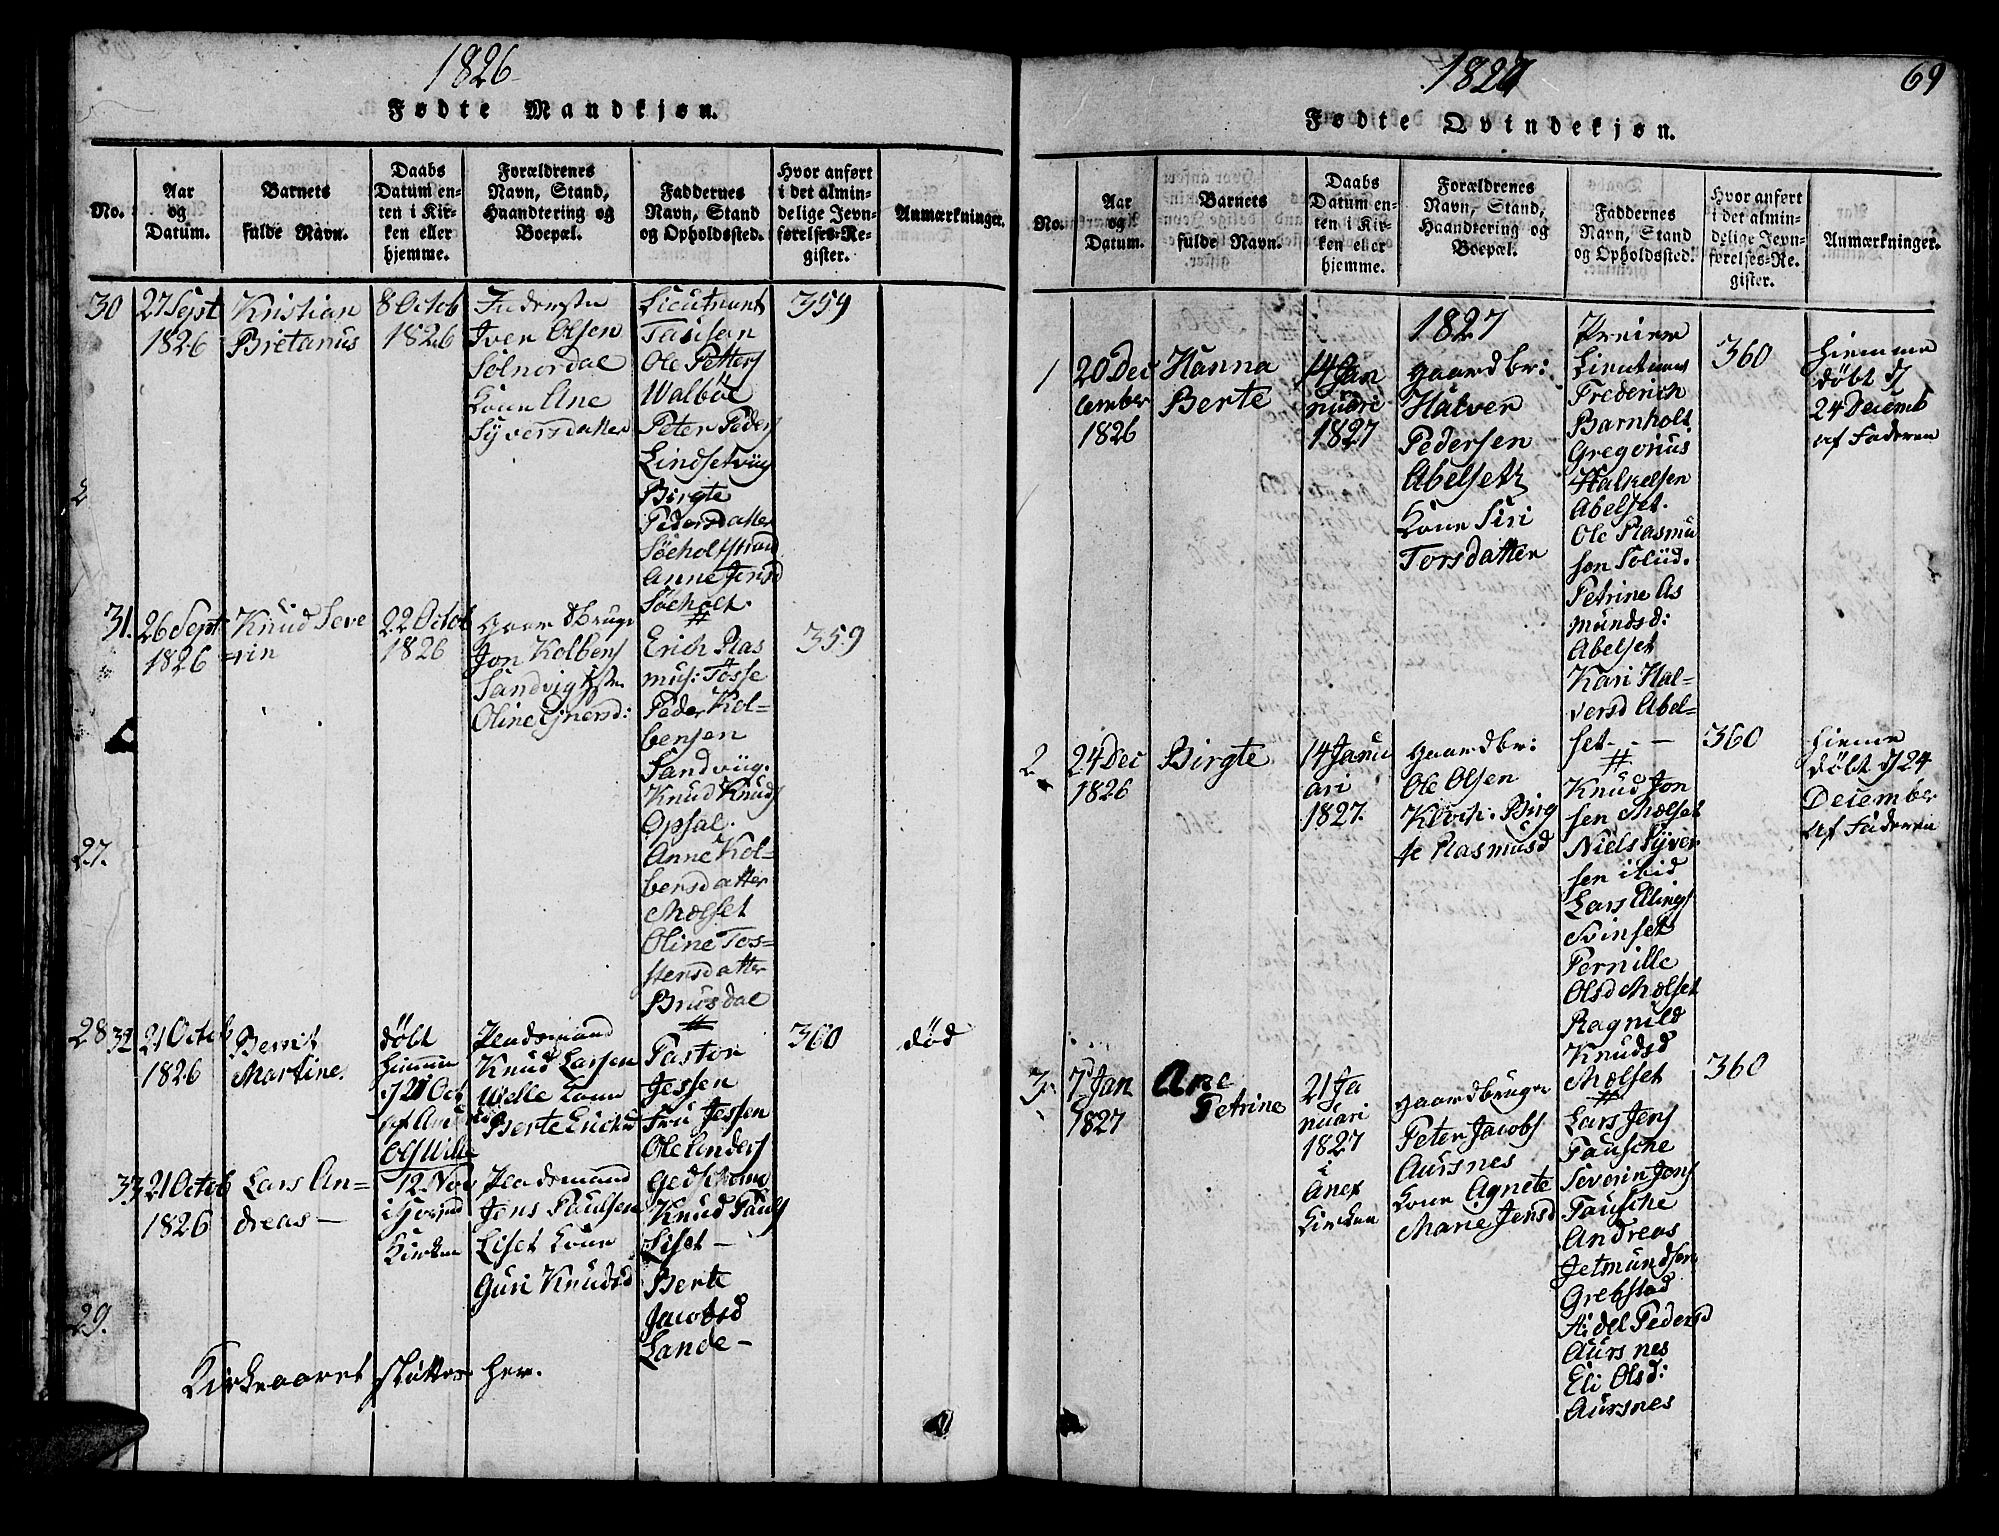 1826
Fødte Mandkjøn.
No.
Aar
og
Datum.
Barnets
fulde Navn.
Daabs
Datum en-
ten i Kir-
ken eller
hjemme.
Forældrenes
Navn, Stand,
Haandtering og
Boepæl.
Faddernes
Navn, Stand
og Opholdssted.
Hvor anført
i det almin-
delige Jevn-
førelses-Re-
gister.
Anmærkninger.
30
27 Sept
1826
Kristian
Bretanus
8 Octob
1826
Iver Olsen
Solnordal
Kone Ane
Syversdatter
Lieutnant
Tausan
Ole Petters
Walbøe
Peter Peders
Lindsetvüg
Birgte
Pedersdatter
Søeholtstrand
Anne Jensd
Søeholt.
359
31.
26 Sept
1826
Knud Seve
rin
22 Octob
1826
Gaardbrug
Jon Kolbens
Sandvig
Oline Gnersd:
Erich Ras
mus: Fosse
Peder Kol-
bensen
Sandvüg.
Knud Knuds
Opsal.
Anne Kol-
bensdatter
Molset
Oline Tos-
stensdatter
Brusdal
359
27.
28
32
21 Octob
1826
Berit
Martine.
døbt
hiemme
21 Oct
Huusmand
Knud Larsen
Welle Kone
Berte Ericksd
Pastor
Jessen
Fru Jessen
Ole Anders
Knud Pauls
Liset -
Berte
Jacobsd
Lande -
360
død
33
21 Octob
1826
Lars An-
dreas -
12 Nov
Kirken
Huusmand
Jens Paulsen
Liset Kone
Guri Knudsd
29.
Kirkeaaret slutter her.
1827
69
Fødte Qvindekjøn.
No.
Aar
og
Datum.
Barnets
fulde Navn.
Daabs
Datum en-
ten i Kir-
ken eller
hjemme.
Forældrenes
Navn, Stand,
Haandtering og
Boepæl.
Faddernes
Navn, Stand
og Opholdssted.
Hvor anført
i det almin-
delige Jevn-
førelses-Re-
gister.
Anmærkninger.
1827
1
20 De
cember
1826
Hanna
Berte
14 Jan
nuari
1827
Gaardbr:
Halver
Pedersen
Abelseth
Kone Siri
Torsdatter
Premier
Lieutnant
Frederich
Barnholt
Gregorius
Halvelsen
Abelset.
Ole Rasmu
sen Solüd.
Petrine As
mundsd:
Abelset
Kari Hal-
versd Abel-
set - -
360
Hiemme
døbt d
24 Decemb
af Faderen
2
24 Dec
1826
Birgte
14 Janu
ari
1827.
Gaardbr:
Ole Olsen
Klock. Birg
te Rasmusd
Knud Jon
sen Molset
Niels Syver
sen ibid
Lars Ellings
Svinset
Pernille
Olsd Molset
Ragnild
Knudsd
Molset
360
Hieme
døbt d 24
December
af Faderen
3
7 Jan
1827
Ane
Petrine
21 Ja
nuari
1827
i
Anex
Kirken
Gaardbruger
Peter Jacobs
Aursnes
Kone Agnete
Marie Jensd
Lars Jens
Fausche
Severin Jens
Fausche
Andreas
Jetmundsen
Grebstad
Aidel Pedersd
Aursnes
Eli Olsd:
Aursnes
360